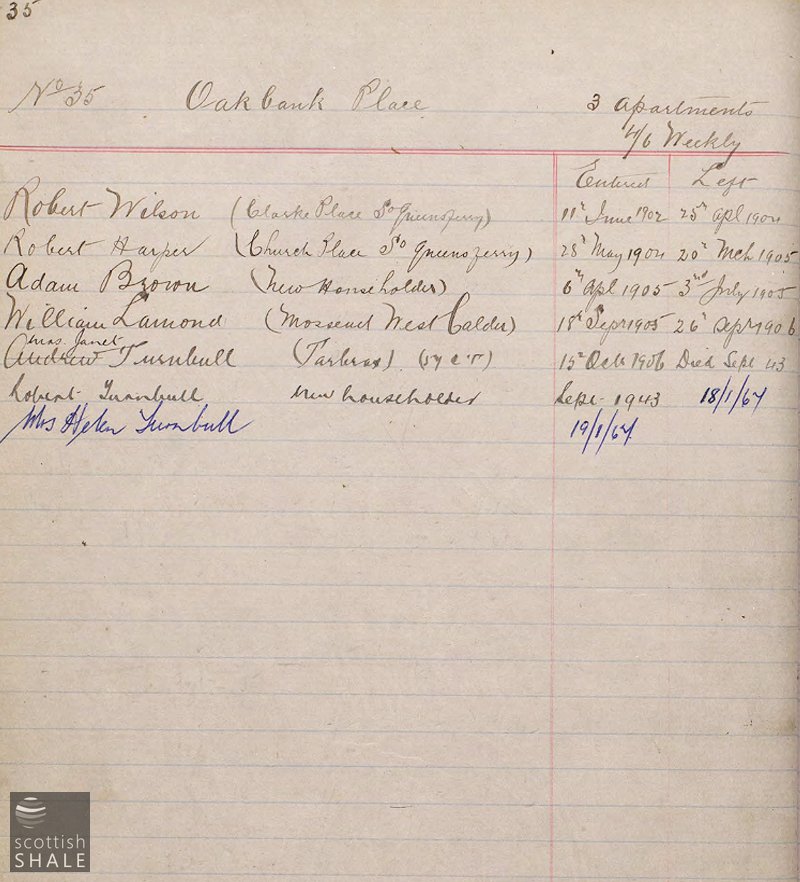 35
No 35 Oakbank Place 3 apartments
4/6 Weekly
Entered Left
Robert Wilson (Clarke Place So Queensferry) 11th June 1902 25th Apl 1904
Robert Harper (Church Place So Queensferry) 28th May 1904 20th Mch 1905
Adam Brown (New Householder) 6th Apl 1905 3rd July 1905
William Lamond (Mossend West Calder) 18th Sepr 1905 26th Sepr 1906
Mrs. Janet
Andrew Turnbull (Tarbrax) 15th Octr 1906 Died Sept 43
Robert Turnbull New householder Sept- 1943 18/1/67
Mrs Helen Turnbull 19/1/67
scottish
SHALE